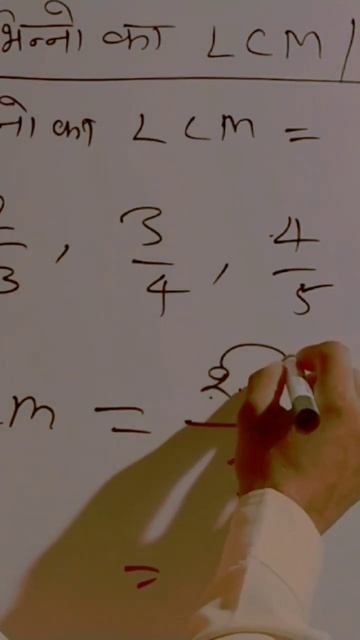 भिन्नो का LCM
का LCM =
3/4 , 4/5
m =
=